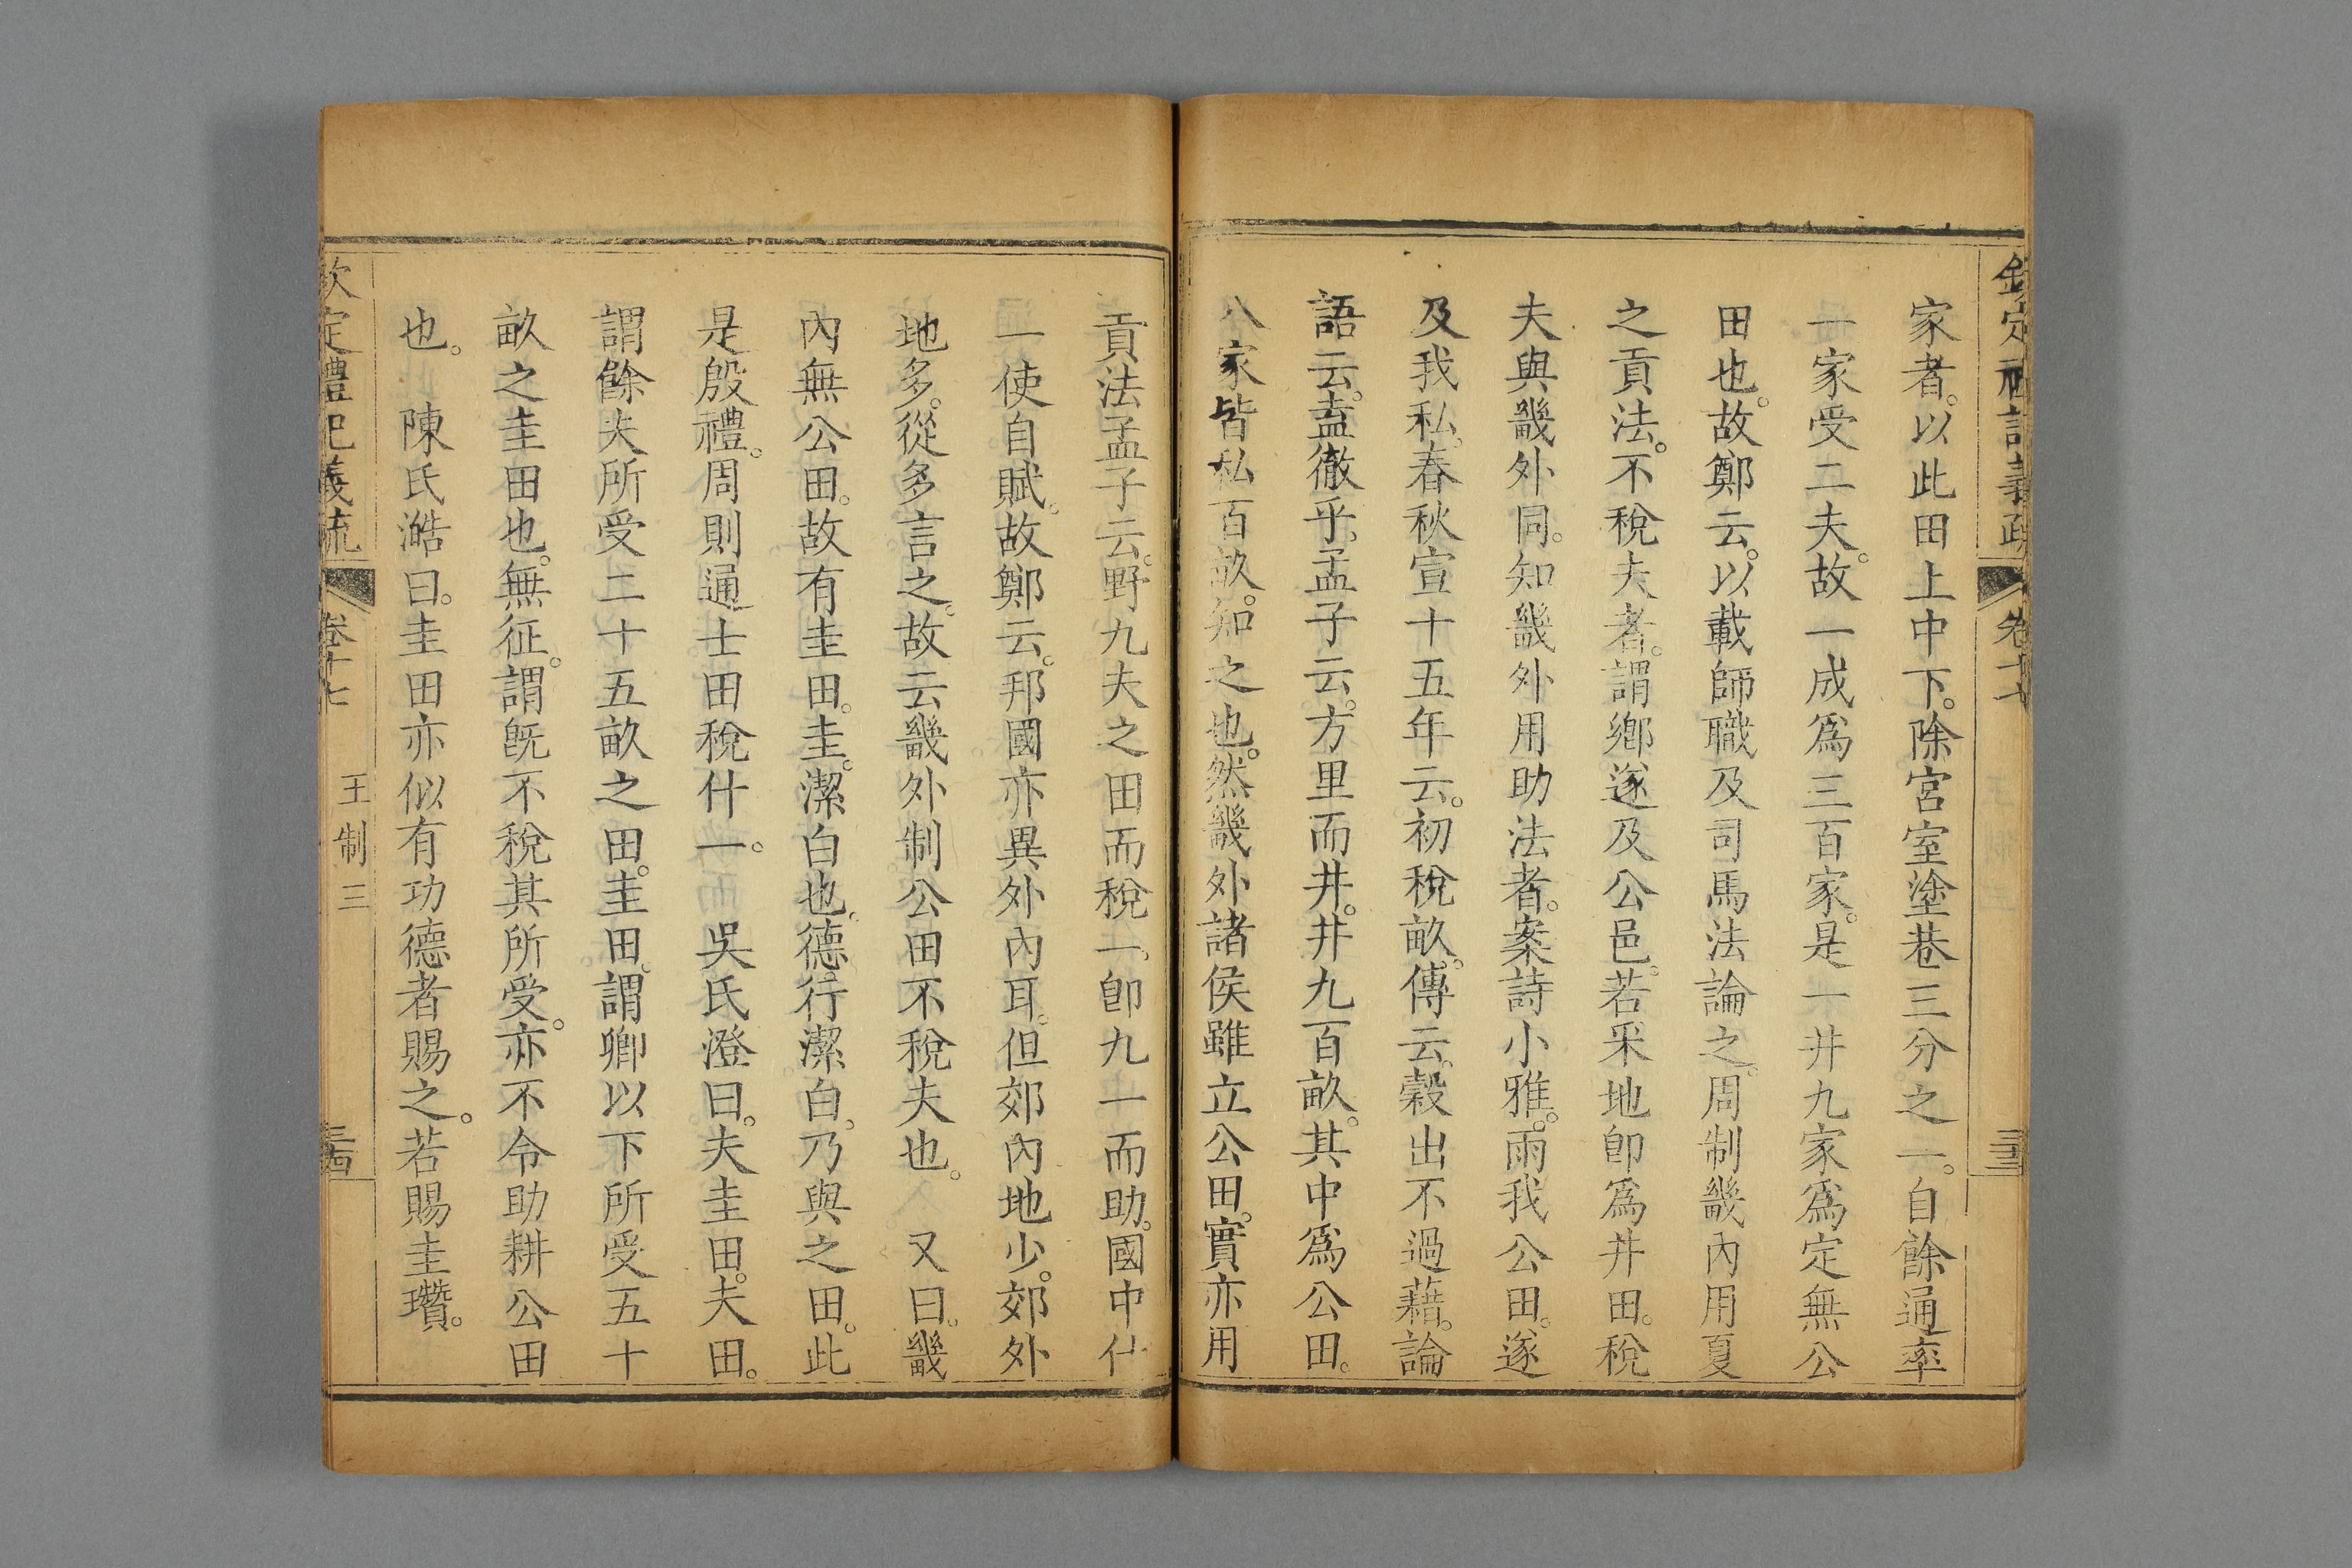 欽定禮記義疏 卷十七
家者。以此田上中下。除宮室塗巷三分之一。自餘通率
一家受二夫。故一成爲三百家。是一井九家爲定無公
田也。故鄭云。以載師職及司馬法論之。周制畿內用夏
之貢法。不稅夫者。謂鄉遂及公邑。若采地卽爲井田。稅
夫與畿外同。知畿外用助法者。案詩小雅。雨我公田。遂
及我私。春秋宣十五年云。初稅畝。傳云。穀出不過藉。論
語云。盍徹乎。孟子云。方里而井。井九百畝。其中爲公田。
八家皆私百畝。知之也。然畿外諸侯雖立公田。實亦用
貢法孟子云。野九夫之田而稅一。卽九一而助。國中什
一使自賦。故鄭云。邦國亦異外內耳。但郊內地少。郊外
地多。從多言之。故云畿外制公田不稅夫也。 又曰。畿
內無公田。故有圭田。圭。潔白也。德行潔白。乃與之田。此
是殷禮。周則通士田稅什一。 吳氏澄曰。夫圭田。夫田。
謂餘夫所受二十五畝之田。圭田。謂卿以下所受五十
畝之圭田也。無征。謂旣不稅其所受。亦不令助耕公田
也。 陳氏澔曰。圭田亦似有功德者賜之。若賜圭瓚。
欽定禮記義疏 卷十七 王制三 三四